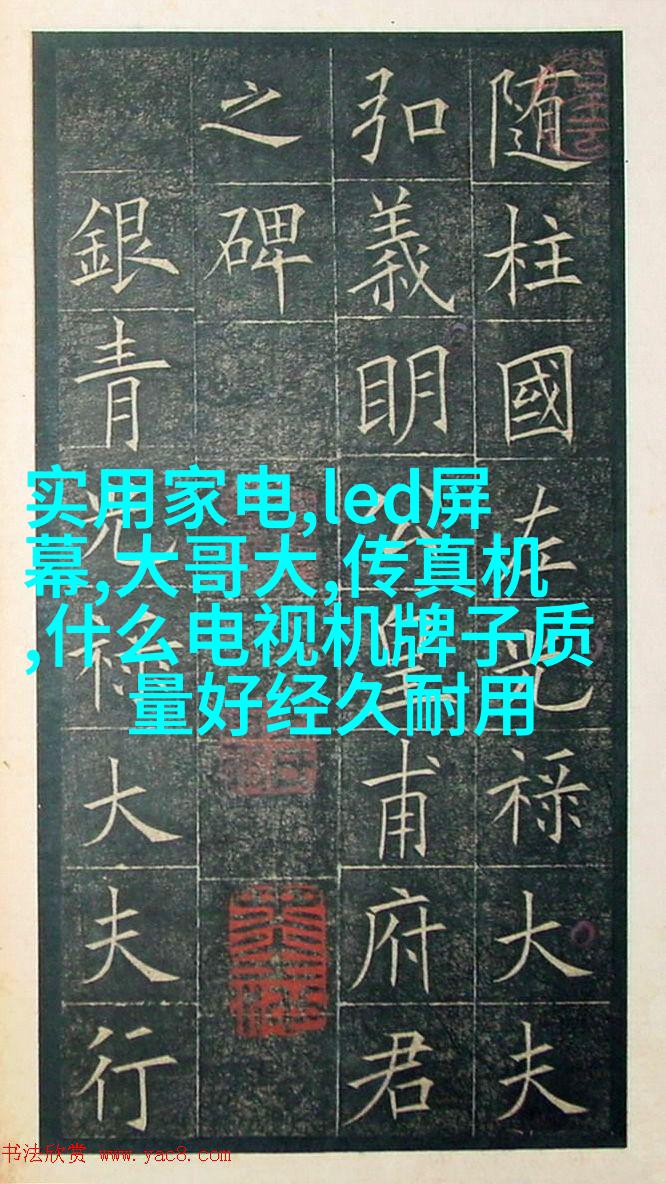 随柱國左光祿大夫
弘義明公皇甫府君
之碑
銀青光祿大夫行
实用家电,led屏
幕,大哥大,传真机
,什么电视机牌子质
量好经久耐用
书法欣赏 www.yac8.com